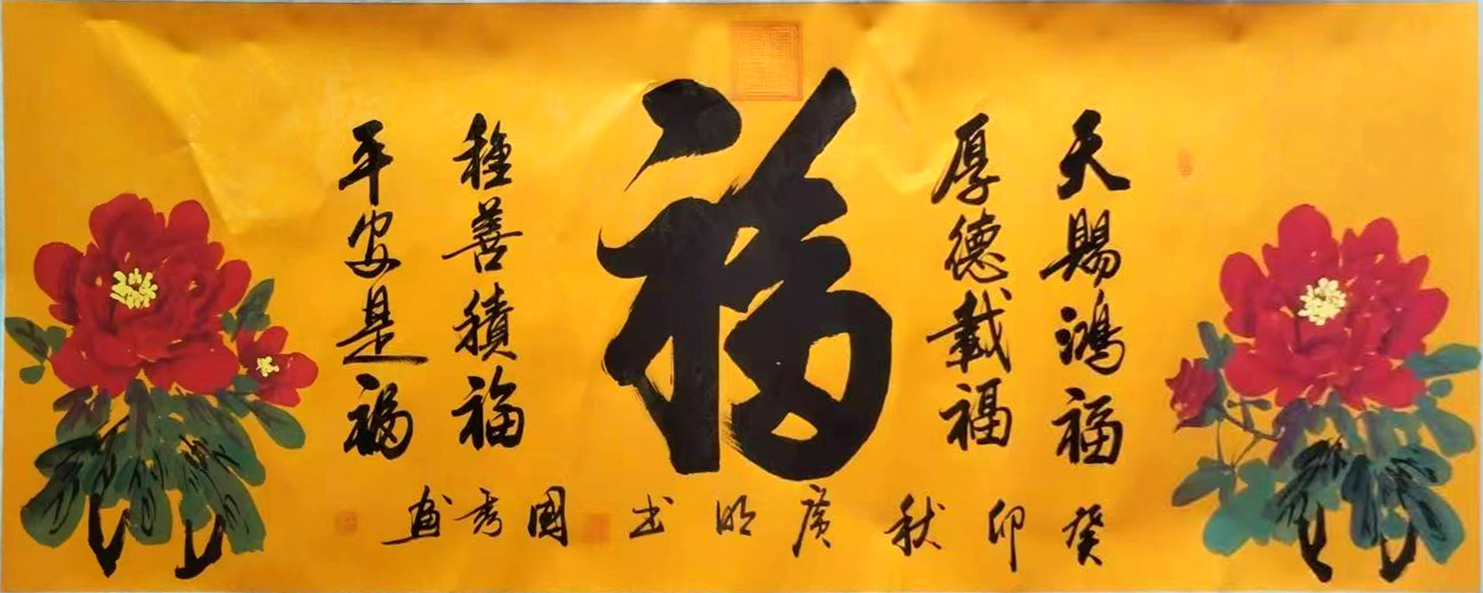 天賜鴻福
厚德載福
福
種善積福
平安是福
癸卯秋廣明書國秀畫